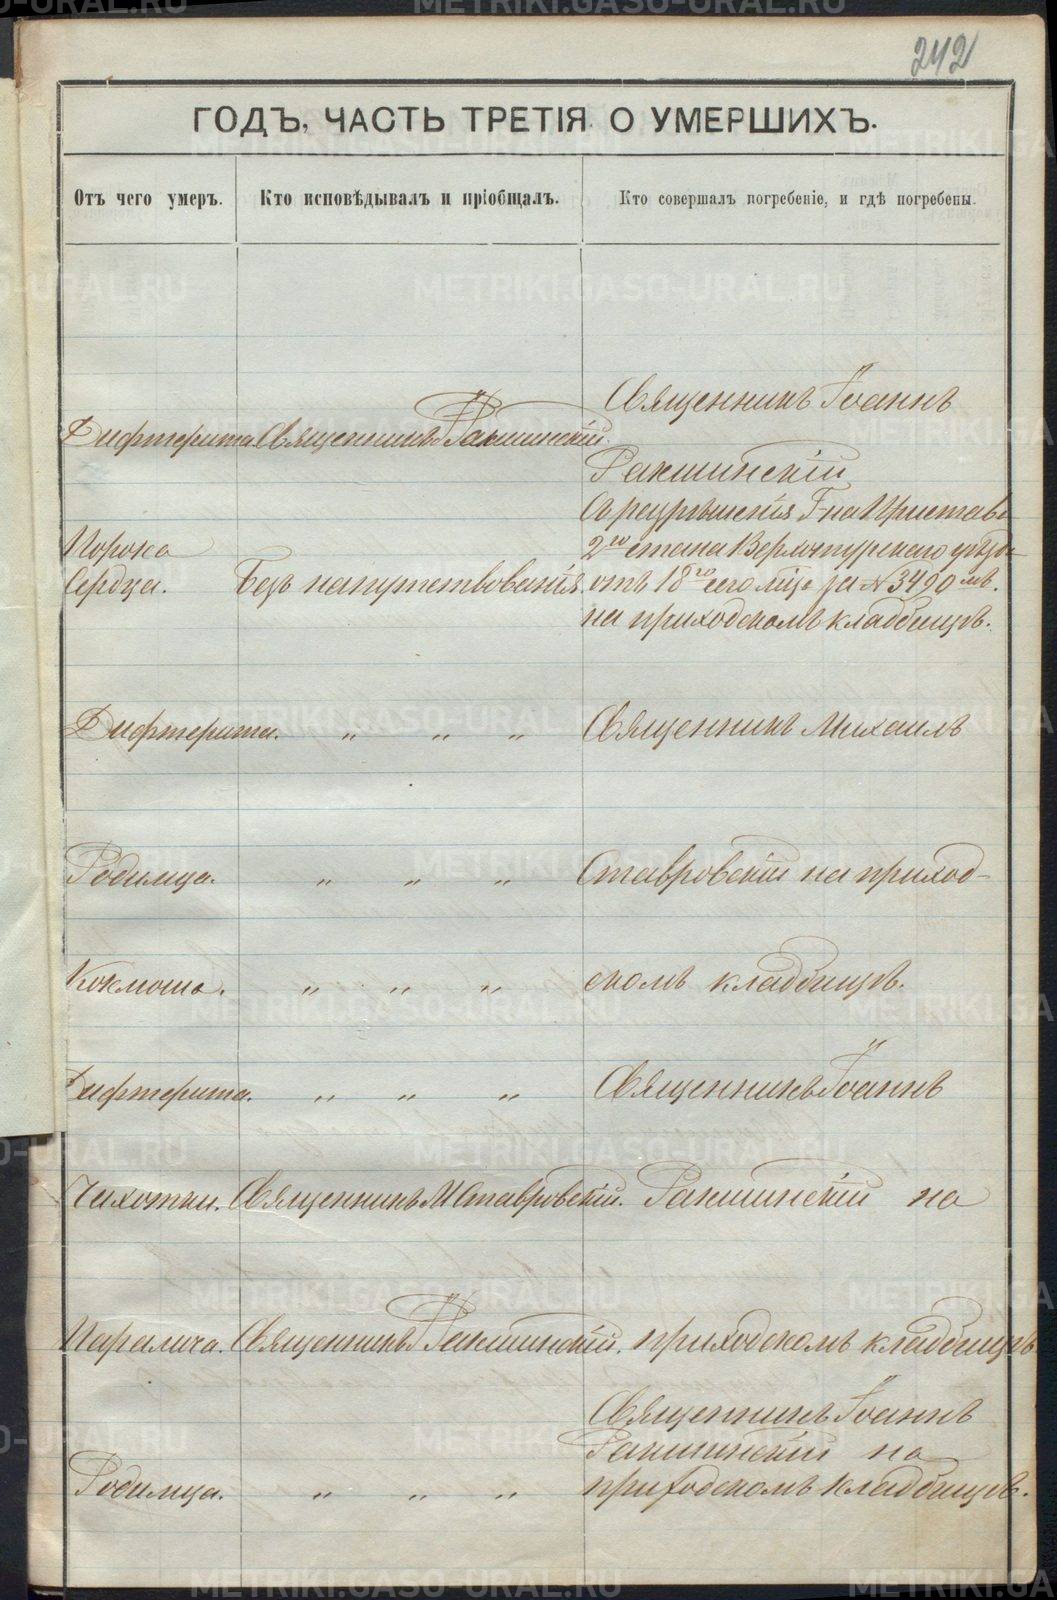 242
ГОДЪ, ЧАСТЬ ТРЕТІЯ О УМЕРШИХЪ.
Отъ чего умеръ.
Кто исповѣдывалъ и пріобщалъ.
Кто совершалъ погребеніе, и гдѣ погребены.
Священникъ Іоаннъ
Дифтерита Священникъ Ракшинскій.
Ракшинскій
Съ разрѣшенія Г-на Пристава
Порока
2го стана Верхотурскаго уѣзда
Сердца. Безъ напутствованія. отъ 18го сего м-ца за № 3490мъ.
на приходскомъ кладбищѣ.
Дифтерита. " " " Священникъ Михаилъ
Родимца. " " " Ставровскій на приход-
Коклюша. " " " скомъ кладбищѣ.
Дифтерита. " " " Священникъ Іоаннъ
Чахотки. Священникъ М Ставровскій. Ракшинскій на
Паралича. Священникъ Ракшинскій. приходскомъ кладбищѣ
Священникъ Іоаннъ
Ракшинскій на
Родимца. " " " приходскомъ кладбищѣ.
METRIKI.GASO-URAL.RU